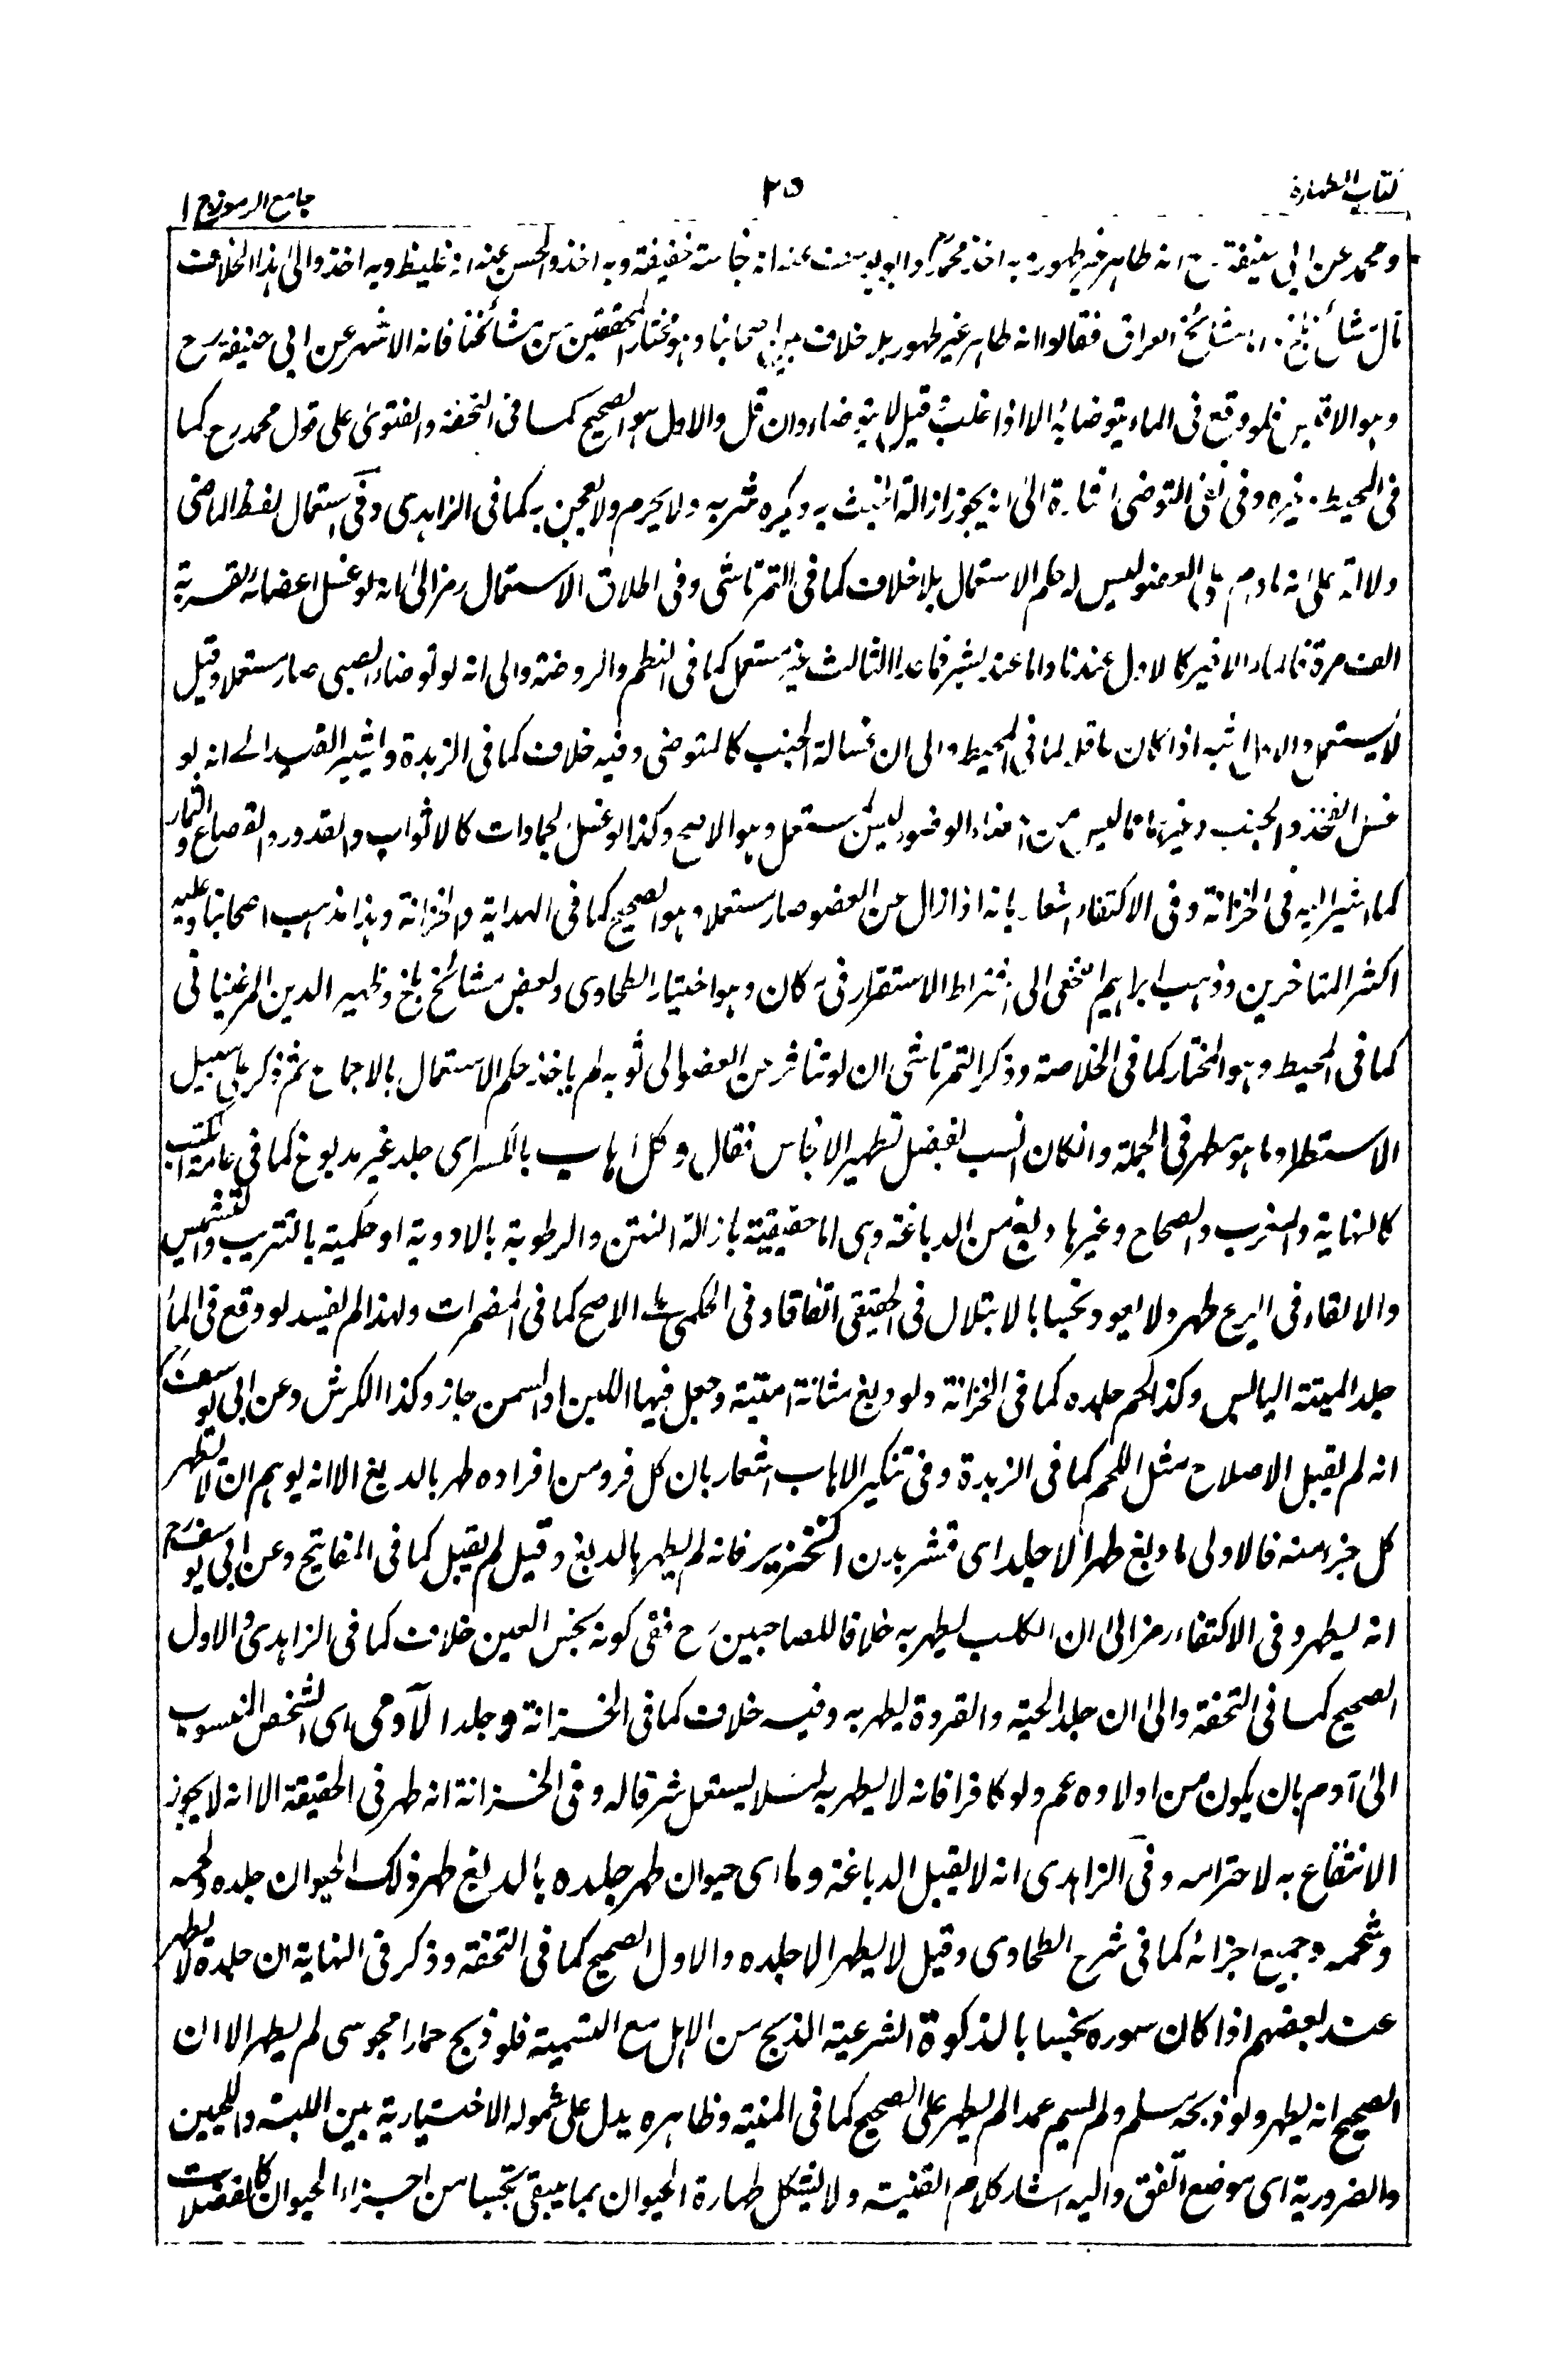 كتاب الطهارة
٢٥
جامع الرموز ج ١
ومحمد عن ابي حنيفة رح انه طاهر غير طهور وبه اخذ محمد رح وابو يوسف عنه انه نجاسته خفيفة وبه اخذ والحسن عنه انه غليظ وبه اخذ والى هذا الخلاف
مال مشائخ بلخ واما مشائخ العراق فقالوا انه طاهر غير طهور بلا خلاف بين اصحابنا وهو مختار المحققين من مشائخنا فانه الاشهر عن ابي حنيفة رح
وهو الاقيس فلو وقع في الماء يتوضأ به الا اذا غلب وقيل لا يتوضاء وان قل والاول هو الصحيح كما في التحفة والفتوى على قول محمد رح كما
في المحيط وغيره وفي نفي التوضي اشارة الى انه يجوز ازالة الخبث به ويكره شربه ولا يحرم ولا يعجن به كما في الزاهدي وفي استعمال لفظ الماضي
دلالة على انه ما دام على العضو ليس له حكم الاستعمال بلا خلاف كما في التمرتاشي وفي اطلاق الاستعمال رمز الى انه لو غسل اعضائه لقربة
الف مرة فالماء الاخير كالاول عندنا واما عند بشر فما عدا الثالث غير مستعمل كما في النظم والروضة والى انه لو توضاء الصبي صار مستعملا وقيل
لا يستعمل والاول اشبه اذا كان عاقلا كما في المحيط والى ان غسالة الجنب كالمتوضي وفيه خلاف كما في الزبدة ويشير القيد الى انه لو
غسل الفخذ والجنب وغيرهما مما ليس من اعضاء الوضوء ليس بمستعمل وهو الاصح وكذا لو غسل الجمادات كالاثواب والقدور والقصاع والثمار
كما اشير اليه في الخزانة وفي الاكتفاء اشعار بانه اذا زال عن العضو صار مستعملا وهو الصحيح كما في الهداية والخزانة وهذا مذهب اصحابنا وعليه
اكثر المتاخرين وذهب ابراهيم النخعي الى اشتراط الاستقرار في مكان وهو اختيار الطحاوي وبعض مشائخ بلخ وظهير الدين المرغيناني
كما في المحيط وهو المختار كما في الخلاصة وذكر التمرتاشي ان لو تناثر عن العضو الى ثوبه لم ياخذ حكم الاستعمال بالاجماع ثم ذكر على سبيل
الاستطراد ما هو مطهر في الجملة وان كان انسب بفصل تطهير الانجاس فقال وكل اهاب بالكسر اي جلد غير مدبوغ كما في عامة الكتب
كالنهاية والمغرب والصحاح وغيرها دبغ من الدباغة وهي اما حقيقية بازالة النتن والرطوبة بالادوية او حكمية بالتتريب والتشميس
والالقاء في الريح طهر ولا يعود نجسا بالابتلال في الحقيقي اتفاقا وفي الحكمي على الاصح كما في المضمرات ولهذا لم يفسد لو وقع في الماء
جلد الميتة اليابس وكذا لحم جلده كما في الخزانة ولو دبغ مثانة الميتة وجعل فيها اللبن او السمن جاز وكذا الكرش وعن ابي يوسف رح
انه لم يقبل الاصلاح مثل اللحم كما في الزبدة وفي تنكير الاهاب اشعار بان كل فرد من افراده طهر بالدبغ الا انه يوهم ان لا يطهر
كل جزء منه فالاولى ما دبغ طهر الا جلد اي قشر بدن الخنزير فانه لم يطهر بالدبغ وقيل لم يقبل كما في المفاتيح وعن ابي يوسف رح
انه يطهر وفي الاكتفاء رمز الى ان الكلب يطهر به خلافا للصاحبين رح ففي كونه نجس العين خلاف كما في الزاهدي والاول
الصحيح كما في التحفة والى ان جلد الحية والقردة يطهر به وفيه خلاف كما في الخزانة وجلد الآدمي اي الشخص المنسوب
الى آدم بان يكون من اولاده عم ولو كافرا فانه لا يطهر به لئلا يستعمل شرفا له وفي الخزانة انه طهر في الحقيقة الا انه لا يجوز
الانتفاع به لاحترامه وفي الزاهدي انه لا يقبل الدباغة وما اي حيوان طهر جلده بالدبغ طهر ذلك الحيوان جلده ولحمه
وشحمه وجميع اجزائه كما في شرح الطحاوي وقيل لا يطهر الا جلده والاول الصحيح كما في التحفة وذكر في النهاية ان جلده لا يطهر
عند بعضهم اذا كان سوره نجسا بالذكوة الشرعية الذبح من الاهل مع التسمية فلو ذبح حمارا مجوسي لم يطهر الا ان
الصحيح انه يطهر ولو ذبحه مسلم ولم يسم عمدا لم يطهر على الصحيح كما في المنية وظاهره يدل على شموله الاختيارية بين اللبة واللحيين
والضرورية اي موضع اتفق واليه اشار كلام القنية ولا يشكل طهارة الحيوان بما يبقى نجسا من اجزاء الحيوان كالفضلات